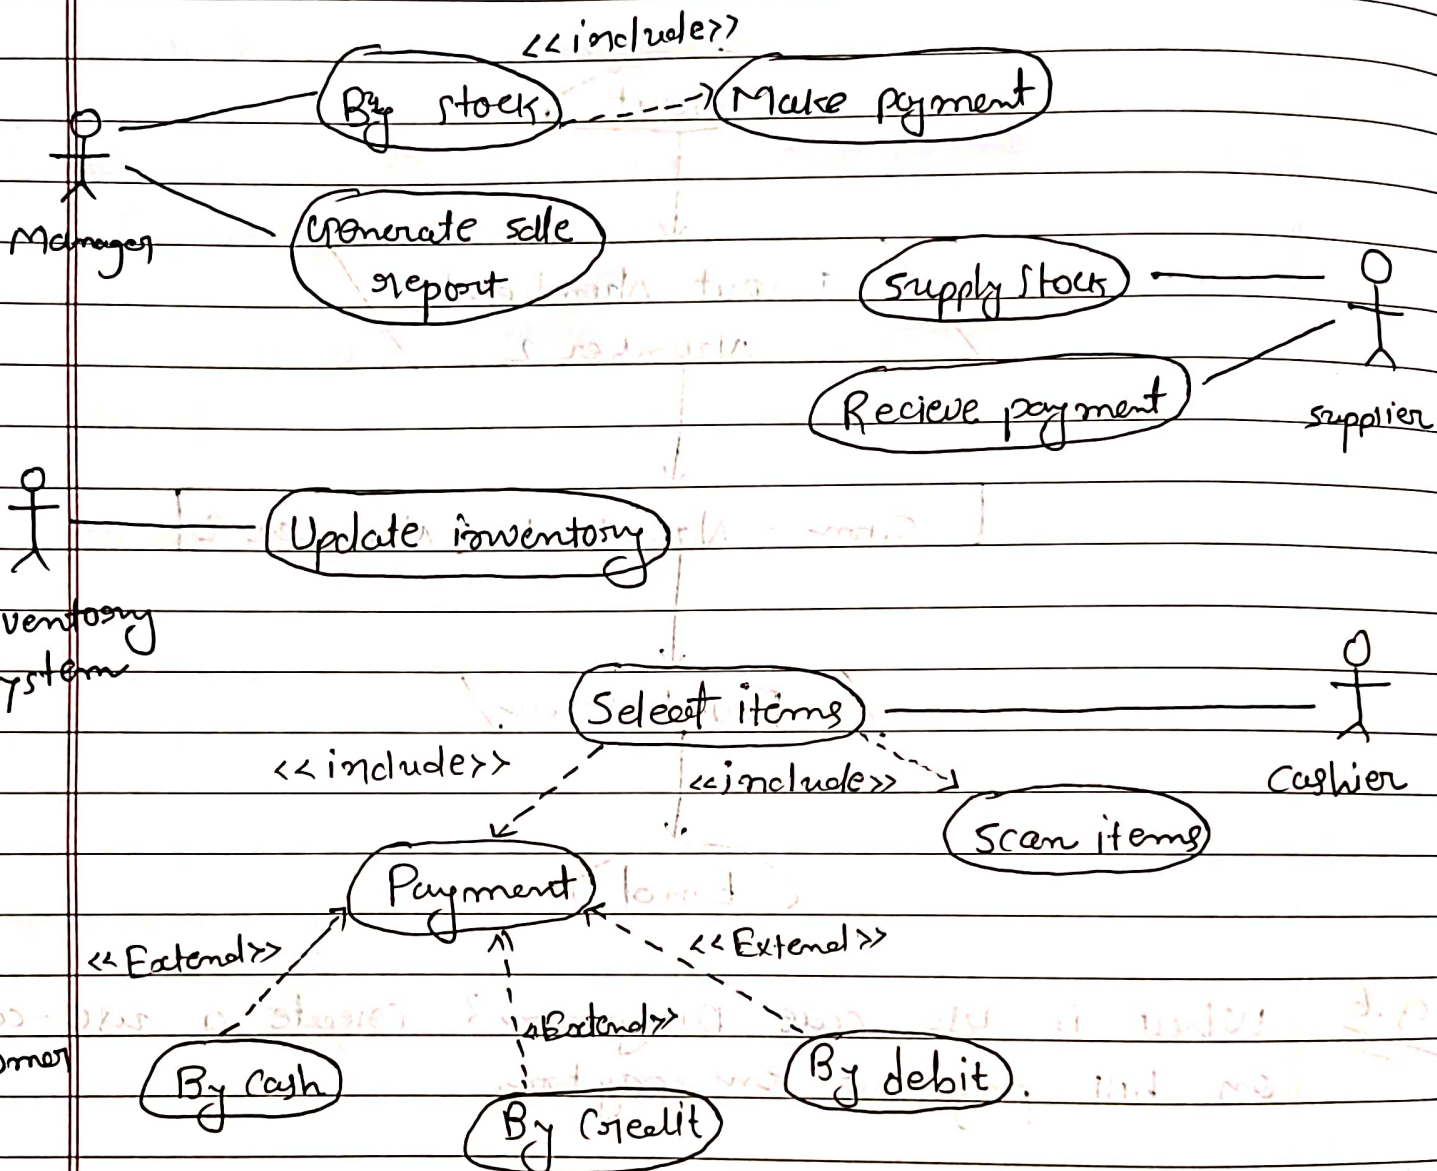 <<include>>
By stock.
Make payment
Manager
Generate sale
report
Supply Stock
Recieve payment
supplier
Update inventory
ventory
ystem
Select items
Cashier
<<include>>
<<include>>
Scan items
Payment
<<Extend>>
<<Extend>>
<<Extend>>
omer
By Cash
By Credit
By debit.